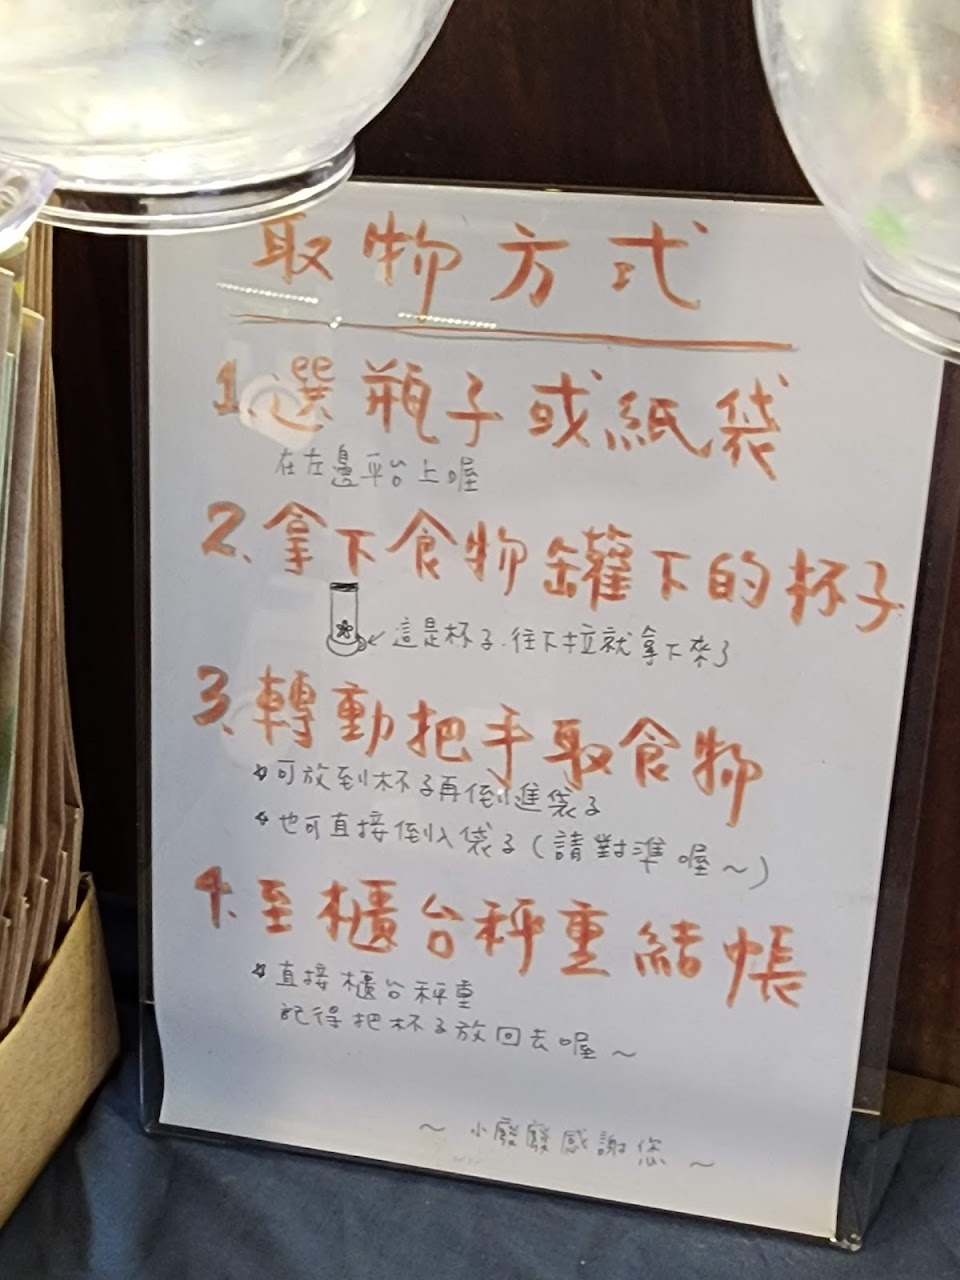 取物方式
1.選瓶子或紙袋
在左邊平台上喔
2、拿下食物罐下的杯子
這是杯子.往下拉就拿下來了
3、轉動把手取食物
*可放到杯子再倒進袋子
*也可直接倒入袋子(請對準喔~)
4、至櫃台秤重結帳
*直接櫃台秤重
記得把杯子放回去喔~
~小廢廢感謝您~